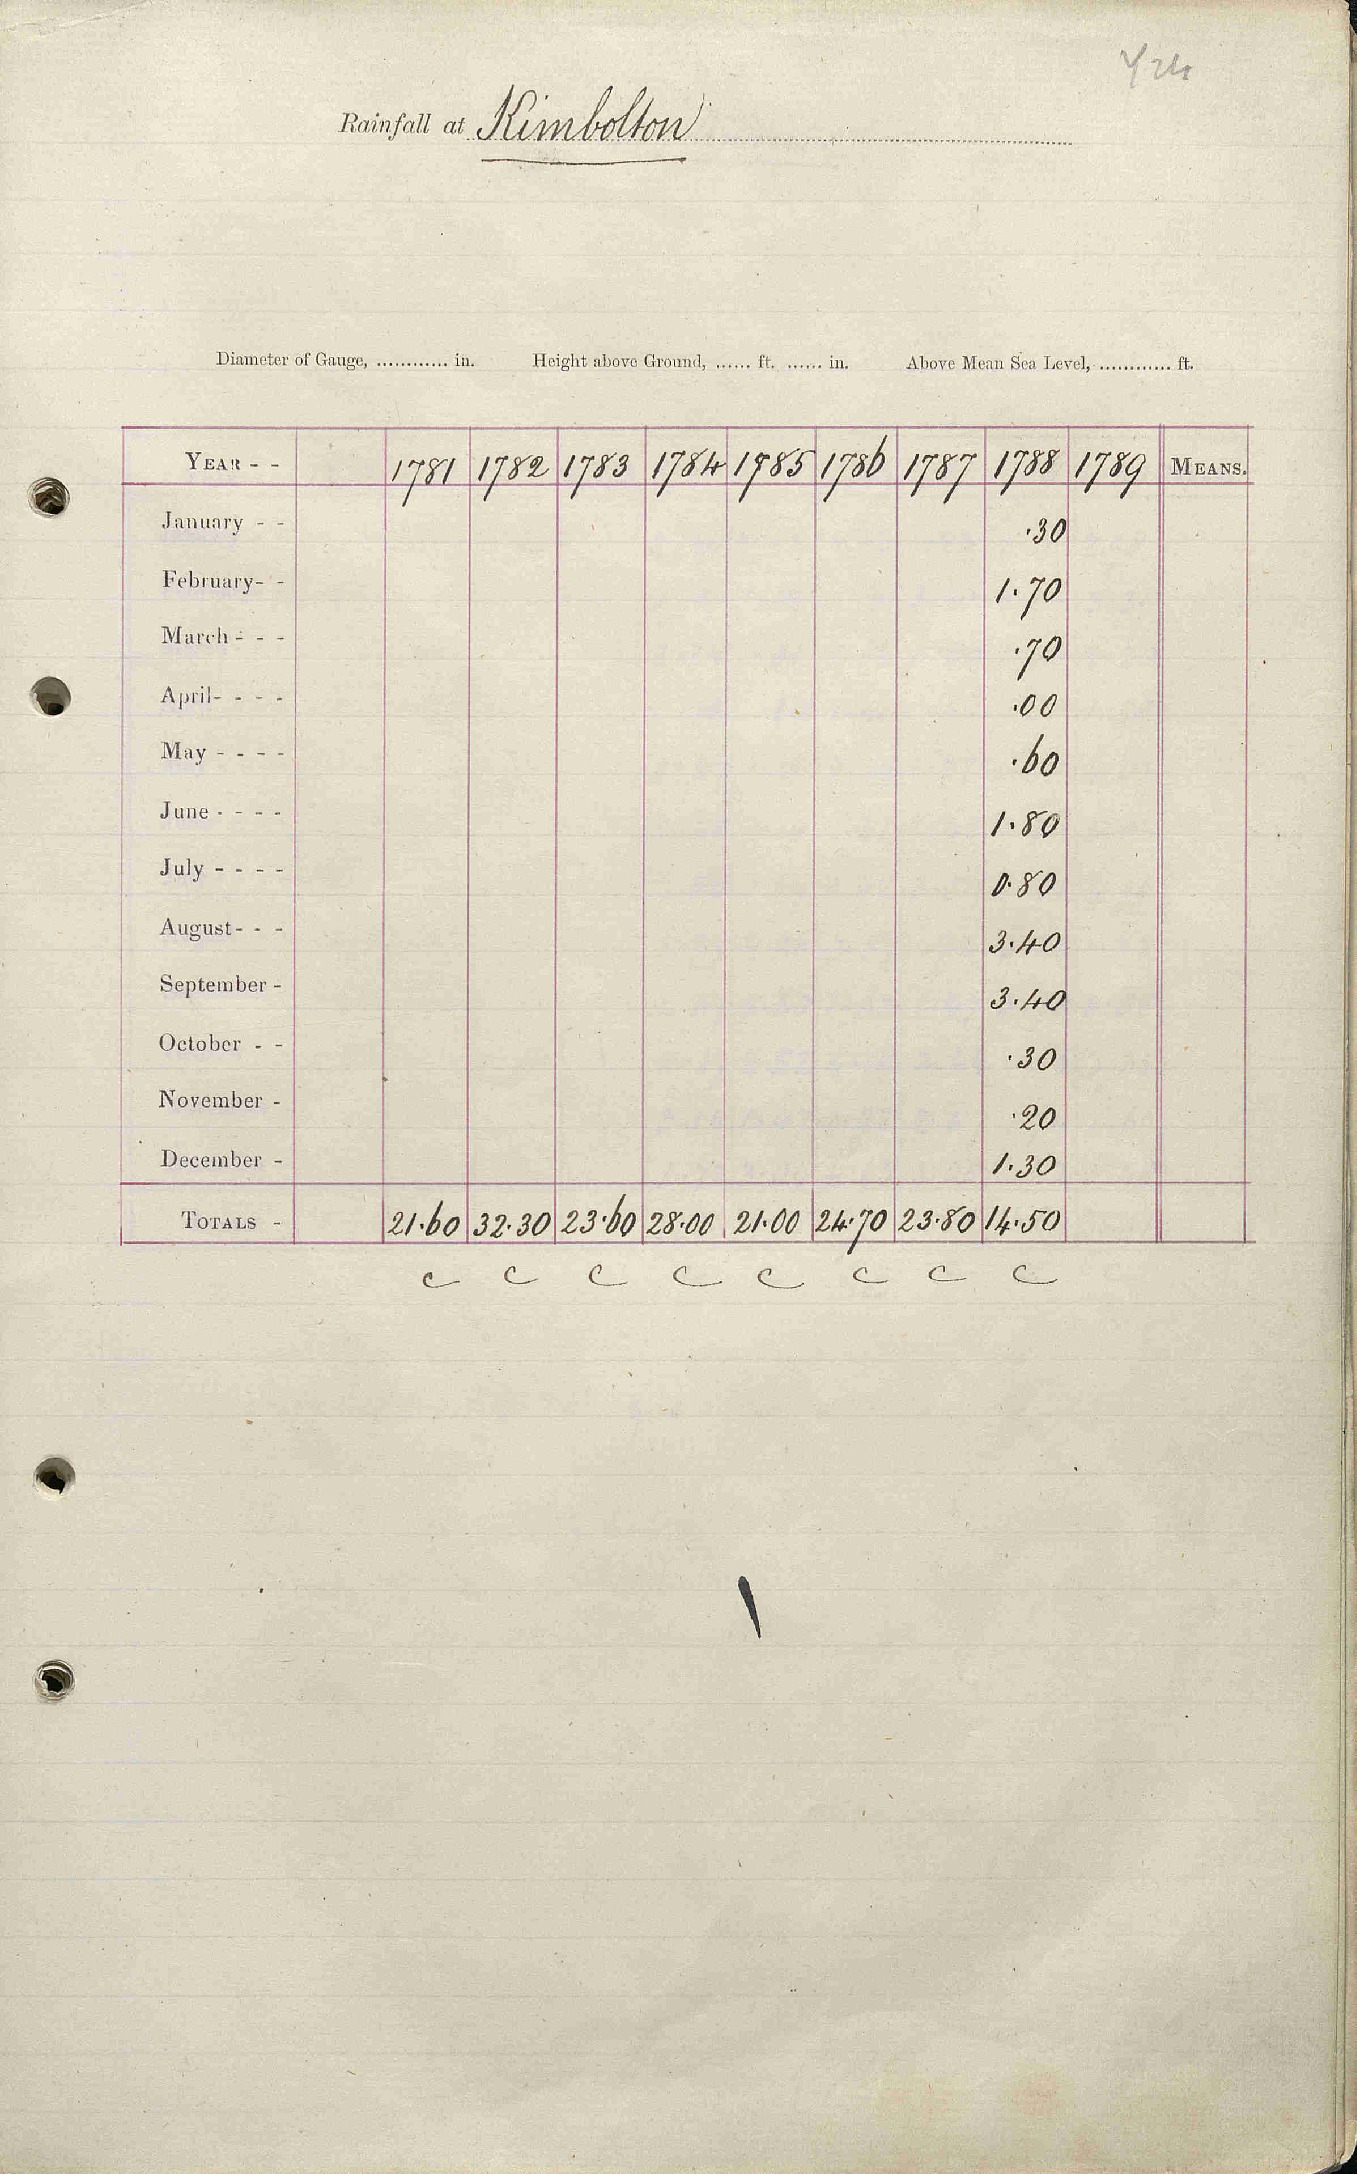 Rainfall at Kimbolton
Diameter of Gauge, ............ in. Height above Ground, ...... ft. ...... in. Above Mean Sea Level, ............ ft.
YEAR - - 1781 1782 1783 1784 1785 1786 1787 1788 1789 MEANS.
January - - .30
February - - 1.70
March - - - .70
April - - - - .00
May - - - - .60
June - - - - 1.80
July - - - - 0.80
August - - - 3.40
September - 3.40
October - - .30
November - .20
December - 1.30
TOTALS - 21.60 32.30 23.60 28.00 21.00 24.70 23.80 14.50
c c c c c c c c